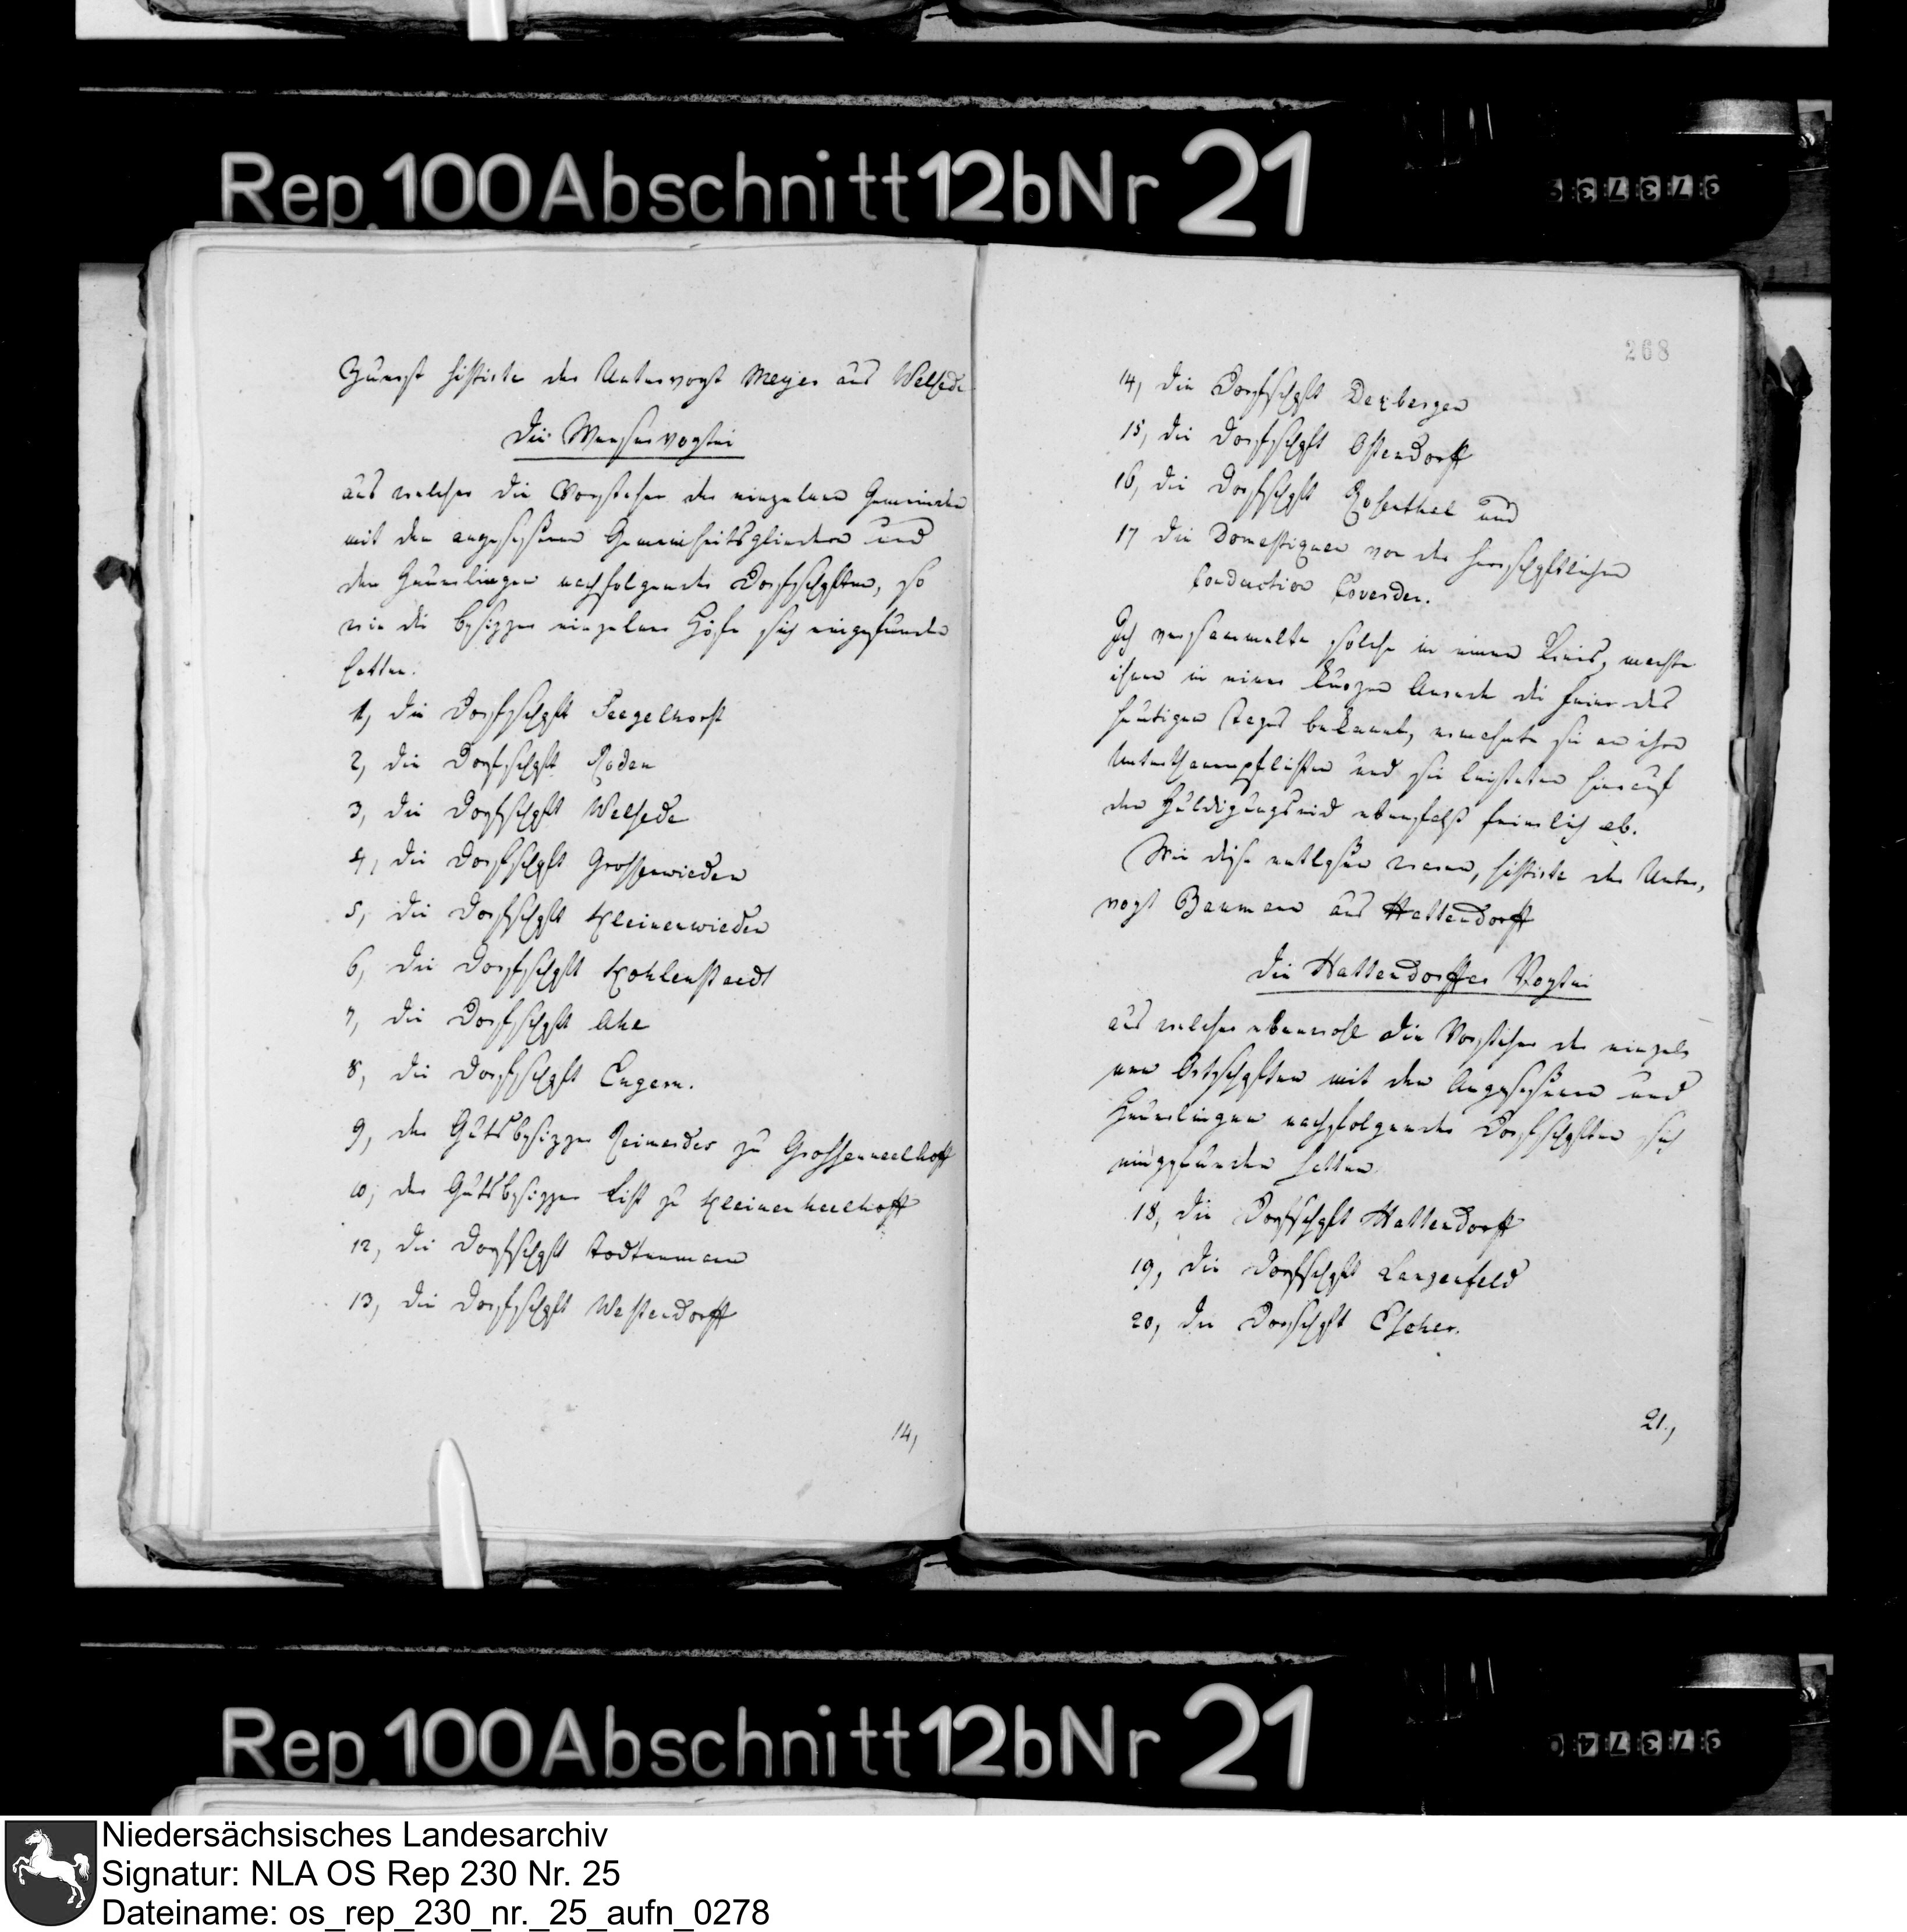 Rep. 100 Abschnitt 12b Nr 21
Zuerst sistirte der Untervogt Meyer aus Welsede
die Weservogtei
aus welcher die Vorsteher der einzelnen Gemeinden
mit den angesessenen Gemeinheitsgliedern und
den Häuslingen nachfolgender Dorfschaften, so
wie die Besizzer einzelner Höfe sich eingefunden
hatten.
1, die Dorfschaft Seegelhorst
2, die Dorfschaft Roden
3, die Dorfschaft Welsede
4, die Dorfschaft Grossenwieden
5, die Dorfschaft Kleinenwieden
6, die Dorfschaft Kohlenstaedt
7, die Dorfschaft Ahe
8, die Dorfschaft Engern.
9, der Gutsbesizzer Reimerdes zu Grossenneelhoff
10, der Gutsbesizzer List zu Kleinenneelhoff
12, die Dorfschaft Todtenmann
13, die Dorfschaft Westendorff
14,
268
14, die Dorfschaft Dexbergen
15, die Dorfschaft Ostendorff
16, die Dorfschaft Rosenthal und
17 die Domestiquen von der herrschaftlichen
Conduction Coverden.
Ich versammelte solche in einen Kreis, machte
ihnen in einer kurzen Anrede die Feier des
heutigen Tages bekannt, ermahnte sie an ihre
Unterthanenpflichten und sie leisteten hierauf
den Huldigungseid ebenfalß feierlich ab.
Wie diese entlaßen waren, sistirte der Unter,
vogt Baumann aus Hattendorff
die Hattendorffer Vogtei
aus welcher ebenwohl die Vorsteher der einzel,
nen Ortschaften mit den Angesessenen und
Häuslingen nachfolgender Dorfschaften sich
eingefunden hatten.
18, die Dorfschaft Hattendorff
19, die Dorfschaft Langenfeld
20, die Dorfschaft Escher.
21,
Rep. 100 Abschnitt 12b Nr 21
Niedersächsisches Landesarchiv
Signatur: NLA OS Rep 230 Nr. 25
Dateiname: os_rep_230_nr._25_aufn_0278